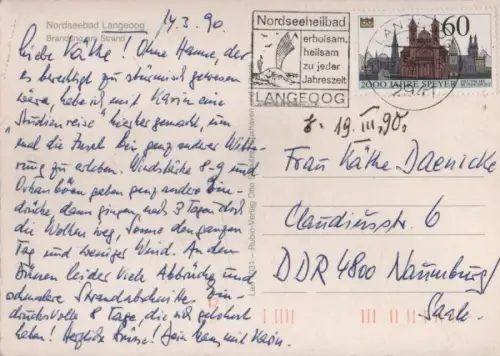 Nordseebad Langeoog
Branding am Strand
14.3.90
Liebe Käthe! Ohne Hanne, der
es berechtigt zu stürmisch gewesen
wäre, habe ich mit Karin eine
"Studienreise" hierher gemacht, um
mal die Insel bei ganz anderer Witte-
rung zu erleben. Windstärke 8-9 und
Orkanböen gaben ganz andere Ein-
drücke, dann gingen nach 3 Tagen dort
die Wolken weg, Sonne den ganzen
Tag und weniger Wind. An den
Dünen leider viele Abbrüche und
schmalere Strandabschnitte. Ein-
drucksvolle 8 Tage, die sich gelohnt
haben! Herzliche Grüsse! Dein Hans mit Karin.
Nordseeheilbad
erholsam,
heilsam
zu jeder
Jahreszeit
LANGEOOG
60
2000 JAHRE SPEYER
DEUTSCHE BUNDESPOST
19.III.90.
Frau Käthe Daenicke
Claudiusstr. 6
DDR 4800 Naumburg/
Saale